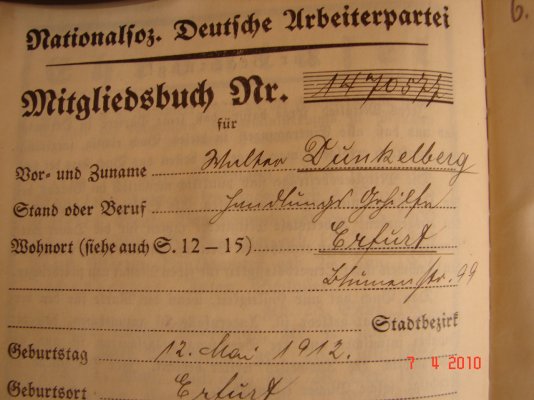 6.
Nationalsoz. Deutsche Arbeiterpartei
Mitgliedsbuch Nr. 1470577
für
Vor- und Zuname Walter Dunkelberg
Stand oder Beruf Handlungs Gehilfe
Wohnort (siehe auch S. 12 – 15) Erfurt
Blumenstr. 99
Stadtbezirk
Geburtstag 12. Mai 1912.
Geburtsort Erfurt
7 4 2010